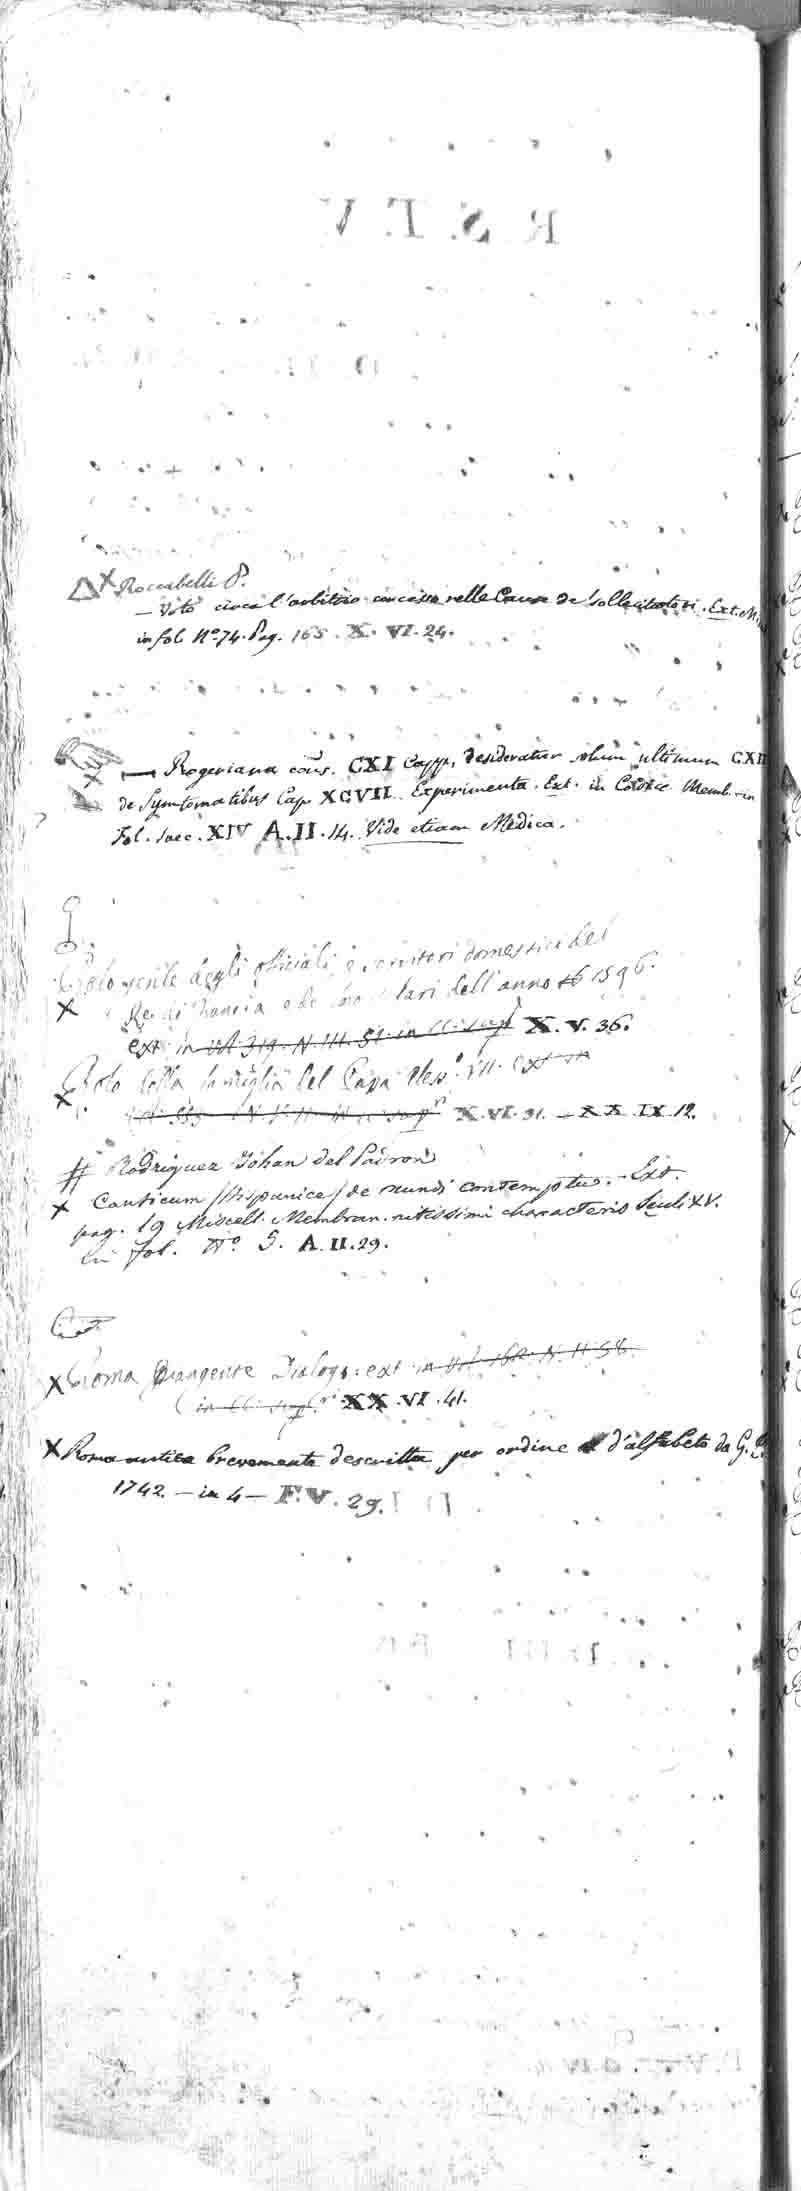 Roccabelli P.
— Voto circa l'arbitrio concesso nelle Cause de' sollecitatori. Ext.
in fol. Nº 74. Pag. 165. X. VI. 24.
— Rogeriana CXI Capp. desideratur solum ultimum
de Symtomatibus Cap. XCVII. Experimenta. Ext. in Codice Memb. in
Fol. saec. XIV A. II. 14. Vide etiam Medica.
Rolo degli officiali e servitori domestici del
Re di Francia dell'anno 1596.
ext. in vol. 319. N. III. 51. in X. V. 36.
Rolo della famiglia del Papa VII. ext. in
X. VI. 31. — XX. IX. 12.
# Rodriguez Johan del Padron
Canticum /Hispanice/ de mundi contemptu. - Ext.
pag. 19 Miscell. Membran. nitissimi characteris Seculi XV.
in fol. Nº. 5. A. II. 29.
Roma piangente Dialogo: ext. in vol. 162. N. II. 58.
XX. VI. 41.
Roma antica brevemente descritta per ordine d'alfabeto da G.
1742. — in 4 — F. V. 29.